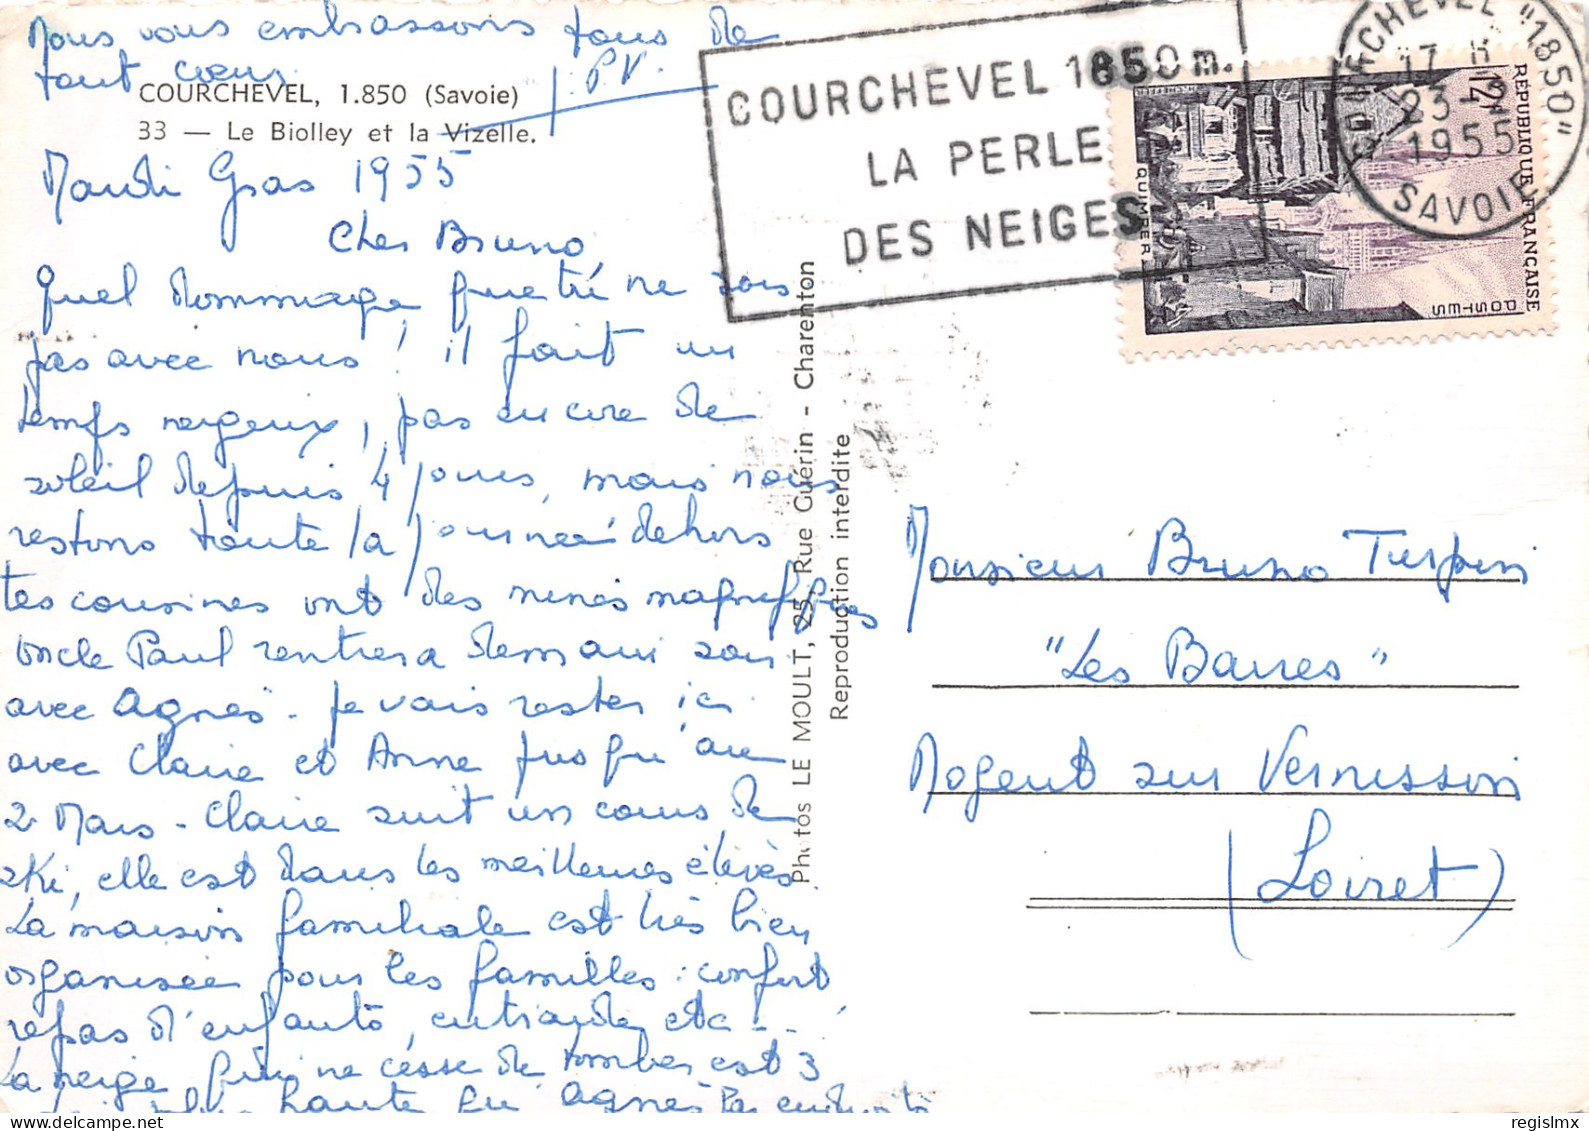 Nous vous embrassons tous de
tout cœur
P.V.
COURCHEVEL, 1.850 (Savoie)
33 — Le Biolley et la Vizelle.
Mardi Gras 1955
Cher Bruno
Quel dommage que tu ne sois
pas avec nous ! il fait un
temps neigeux, pas encore de
soleil depuis 4 jours, mais nous
restons toute la journée dehors
tes cousines ont des mines magnifiques
Oncle Paul rentrera demain soir
avec Agnès - je vais rester ici
avec Claire et Anne jusqu'au
2 Mars - Claire suit un cours de
ski, elle est dans les meilleures élèves.
La maison familiale est très bien
organisée pour les familles : confort
repas d'enfants, entraide etc...
La neige qui ne cesse de tomber est 3
haute qu' Agnès
Photos LE MOULT, 25, Rue Guérin - Charenton
Reproduction interdite
COURCHEVEL 1850 m.
LA PERLE
DES NEIGES
COURCHEVEL "1850"
17 H
23 -2
1955
SAVOIE
12F
RÉPUBLIQUE FRANÇAISE
POSTES
QUIMPER
Monsieur Bruno Turpin
"Les Barres"
Nogent sur Vernisson
(Loiret)
regislmx